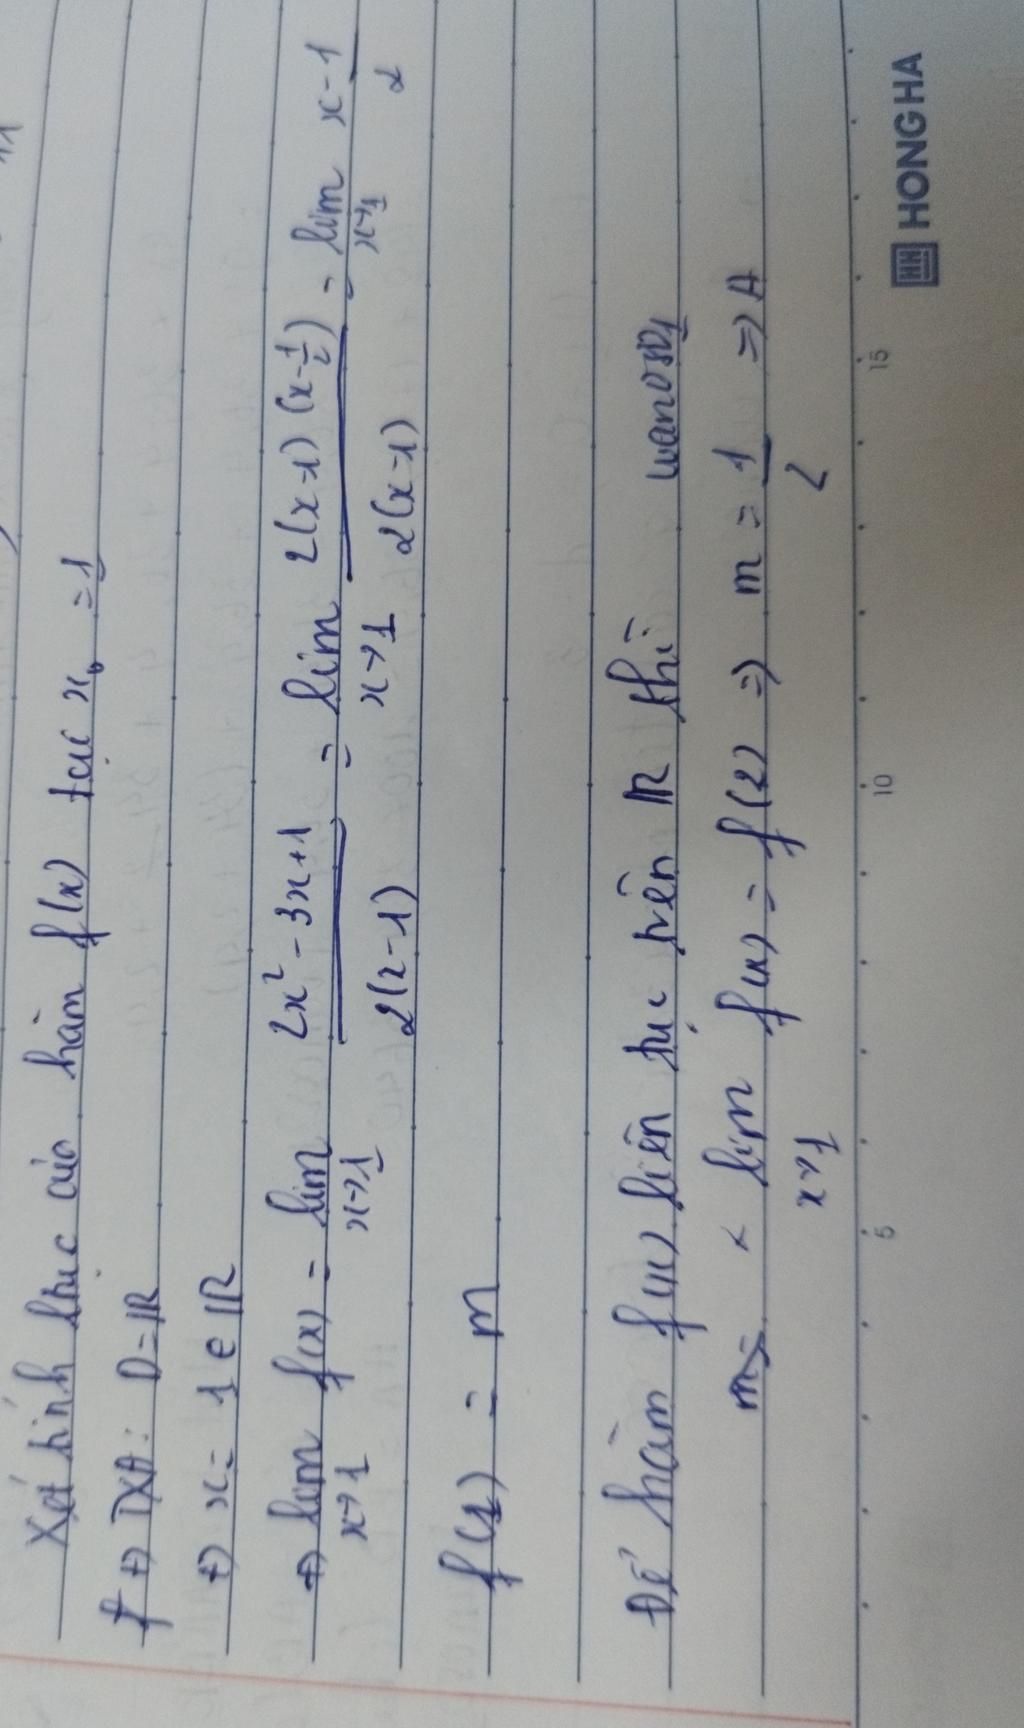 Xét tính liên tục của hàm f(x) tại x₀ = 1
+) TXĐ: D = ℝ
+) x = 1 ∈ ℝ
+) lim x→1 f(x) = lim x→1 (2x² - 3x + 1)/(2(x-1)) = lim x→1 (2(x-1)(x-1/2))/(2(x-1)) = lim x→1 x - 1/2
f(1) = m
Để hàm f(x) liên tục trên ℝ thì
lim x→1 f(x) = f(2) => m = 1/2 => A
5 10 15
HH HONG HA